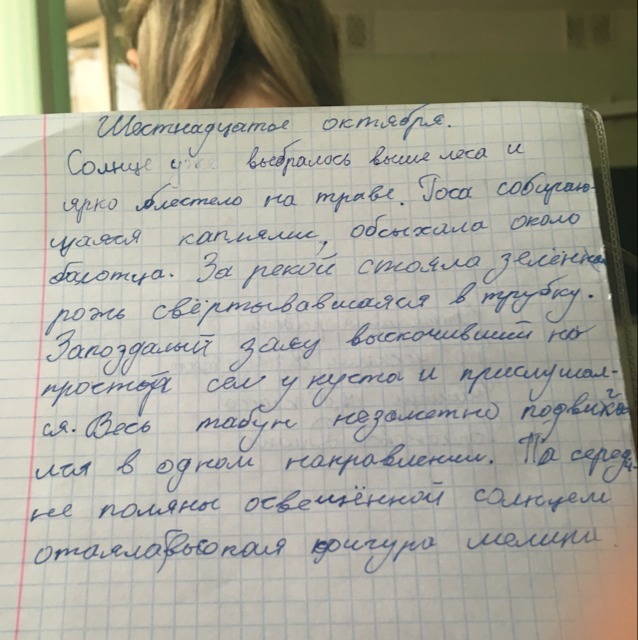 Шестнадцатое октября.
Солнце уже выбралось выше леса и
ярко блестело на траве. Роса собираю-
щаяся каплями, обсыхала около
болотца. За рекой стояла зелённая
рожь свёртывавшаяся в трубку.
Запоздалый заяц выскочивший на
простор сел у куста и прислушал-
ся. Весь табун незаметно подвигал-
лся в одном направлении. По середи-
не поляны освещённой солнцем
стояла высокая фигура мелина.